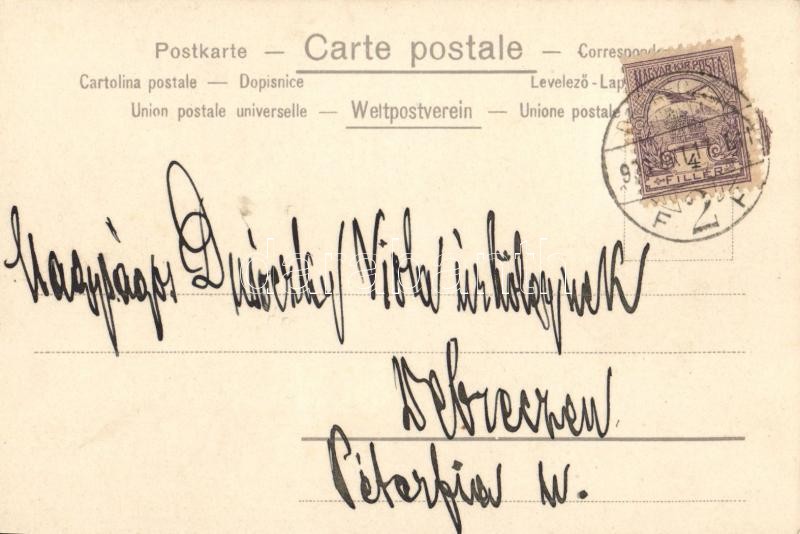 Postkarte — Carte postale — Correspond
Cartolina postale — Dopisnice Levelező-Lap
Union postale universelle — Weltpostverein — Unione postale
MAGYAR KIR. POSTA
4
FILLÉR
2
Nagyságos Viola úrhölgynek
Debreczen
Péterfia u.